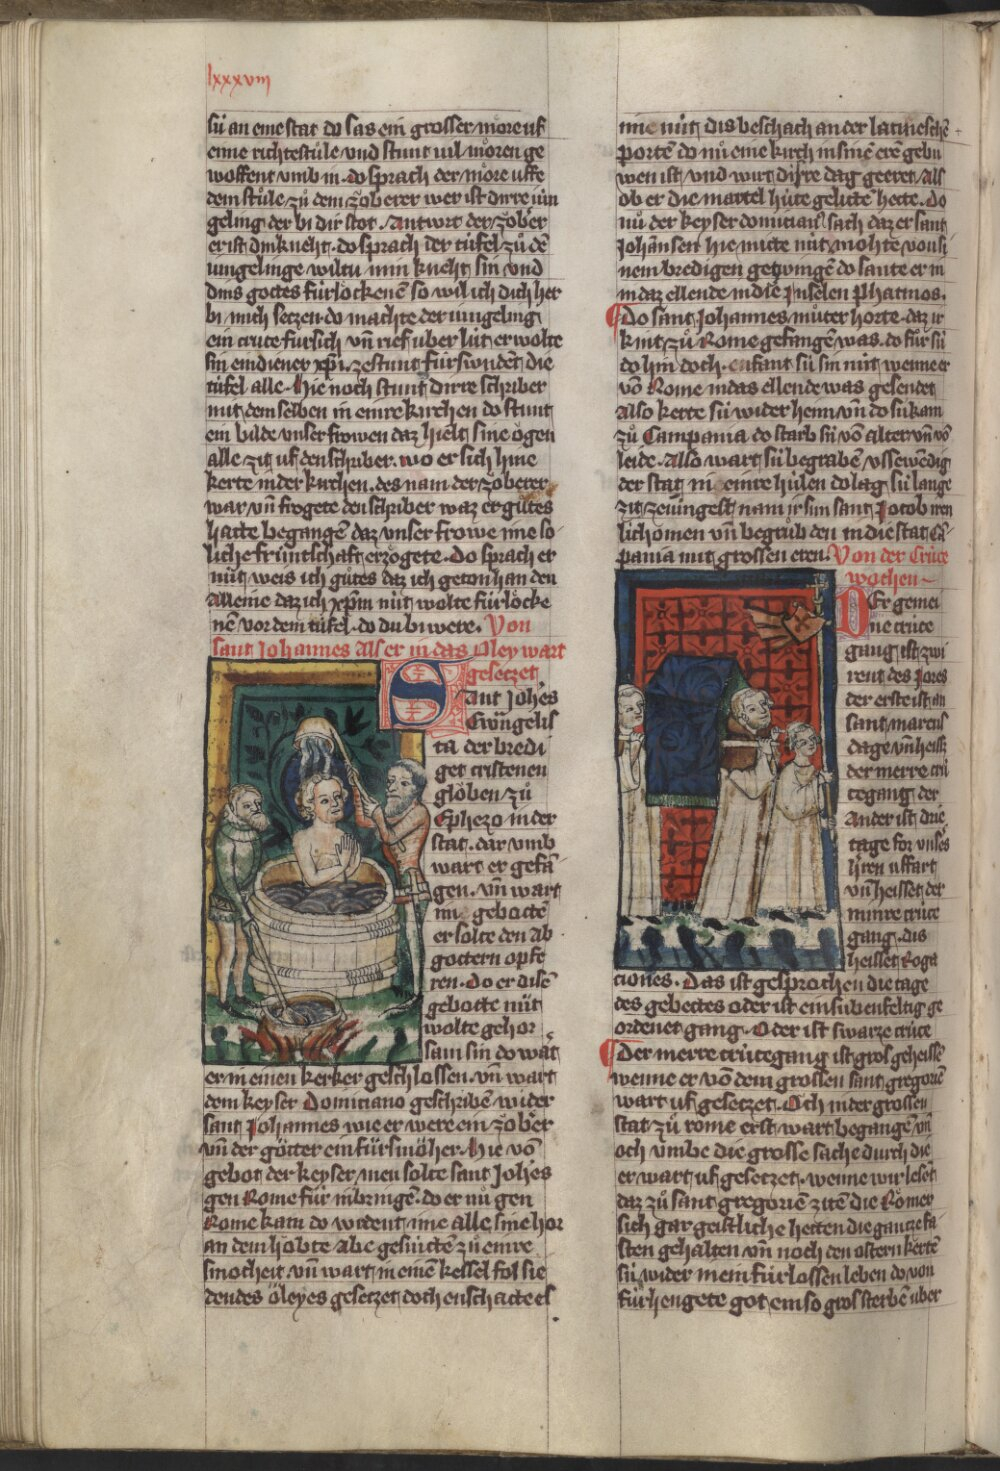 lxxxviii
sú an eine stat do sas ein grosser more uf
eime richtestůle vnd stunt uil moren ge
woffent vmb in. do sprach der more uffe
dem stůle zů dem zoberer wer ist dirre iún
geling der bi dir stot. Antwrt der zober
er ist din kneht. do sprach der túfel zů dē
iungelinge wiltu min kneht sin vnd
dins gottes fúrlöckenē so wil ich dich her
bi mich setzen. do machte der iungeling
ein crúce fúr sich vn̄ rief uber lút er wolte
sin ein diener xp̄i. zestunt fúrswundēt die
túfel alle. Hie noch stunt dirre schriber
mit dem selben in einre kirchen do stunt
ein bilde vnser frowen daz hielt sine ögen
alle zit uf den schriber. wo er sich hine
kerte in der kirchen. des nam der zoberer
war vn̄ frogete den schriber waz er gůtes
hatte begangē daz vnser frowe ime so
liche frúntschaft erzögete. Do sprach er
nút weis ich gůtes daz ich geton han den
alleine daz ich xp̄m nút wolte fúrlöcke
nē vor dem túfel. do du bi were. Von
sant Johannes als er in das Oley wart
gesetzet
Sant Johēs
Ewangelis
ta der bredi
get cristenen
glöben zů
Ephezo in der
stat. dar vmb
wart er gefā
gen. vn̄ wart
im gebottē
er solte den ab
gottern opfe
ren. Do er disē
gebotte nút
wolte gehor
sam sin do wart
er in einen kerker geschlossen. vn̄ wart
dem keyser Domiciano geschribē wider
sant Johannes wie er were ein zober
vn̄ der götter ein fúrsmöher. Hie vō
gebot der keyser men solte sant Johēs
gen Rome fúr in bringē. do er nu gen
Rome kam do wrdent ime alle sine hor
an dem höbte abe gesnittē zů einre
smocheit vn̄ wart in einē kessel fol sie
dendes öleyes gesetzet doch enschattet es
ime nút dis beschach an der latineschē
portē do nů eine kirch in sinē erē gebu
wen ist vnd wirt disre dag geeret als
ob er die martel húte gelittē hette. Do
nů der keyser domician sach daz er sant
Johānsen hie mitte nút mohte von si
nem bredigen getwingē do sante er in
in daz ellende in die Inselen Phatmos.
Do sant Johannes můter horte daz ir
kint zů Rome gefangē was. do fůr sú
do hin doch enfant sú sin nút wenne er
vō Rome in das ellende was gesendet
Also kerte sú wider heim vn̄ do sú kam
zů Campania do starb sú vō alter vn̄ vō
leide. Also wart sú begrabē vssewēdig
der stat in einre húlen do lag sú lange
zit zeiúngest nam ir sun sant Jocob iren
lichomen vn̄ begrůb den in die stat Cā
pania mit grossen eren. Von der Crúce
wochen
Der gemei
ne crúce
gang ist zwi
rent des Jores
der erste ist an
sant marcus
dage vn̄ heisset
der merre crú
cegang der
Ander ist drie
tage for vnses
hren uffart
vn̄ heisset der
minre crúce
gang. dis
heisset Roga
ciones. Das ist gesprochen die tage
des gebettes oder ist ein súbenfeltig ge
ordenet gang. Oder ist swarze crúce
Der merre crúcegang ist gros geheissē
wenne er vō dem grossen sant gregoriē
wart uf gesetzet. Och in der grossen
stat zů rome erst wart begangē vn̄
och vmbe die grosse sache durch die
er wart uf gesetzet. wenne wir lesēt
daz zů sant gregoriē zitē die Römer
sich gar geistliche hetten die gantze fa
sten gehalten vn̄ noch den ostern kertē
sú wider in ein fúrlossen leben do von
fúrhengete got ein so gros sterbē uber